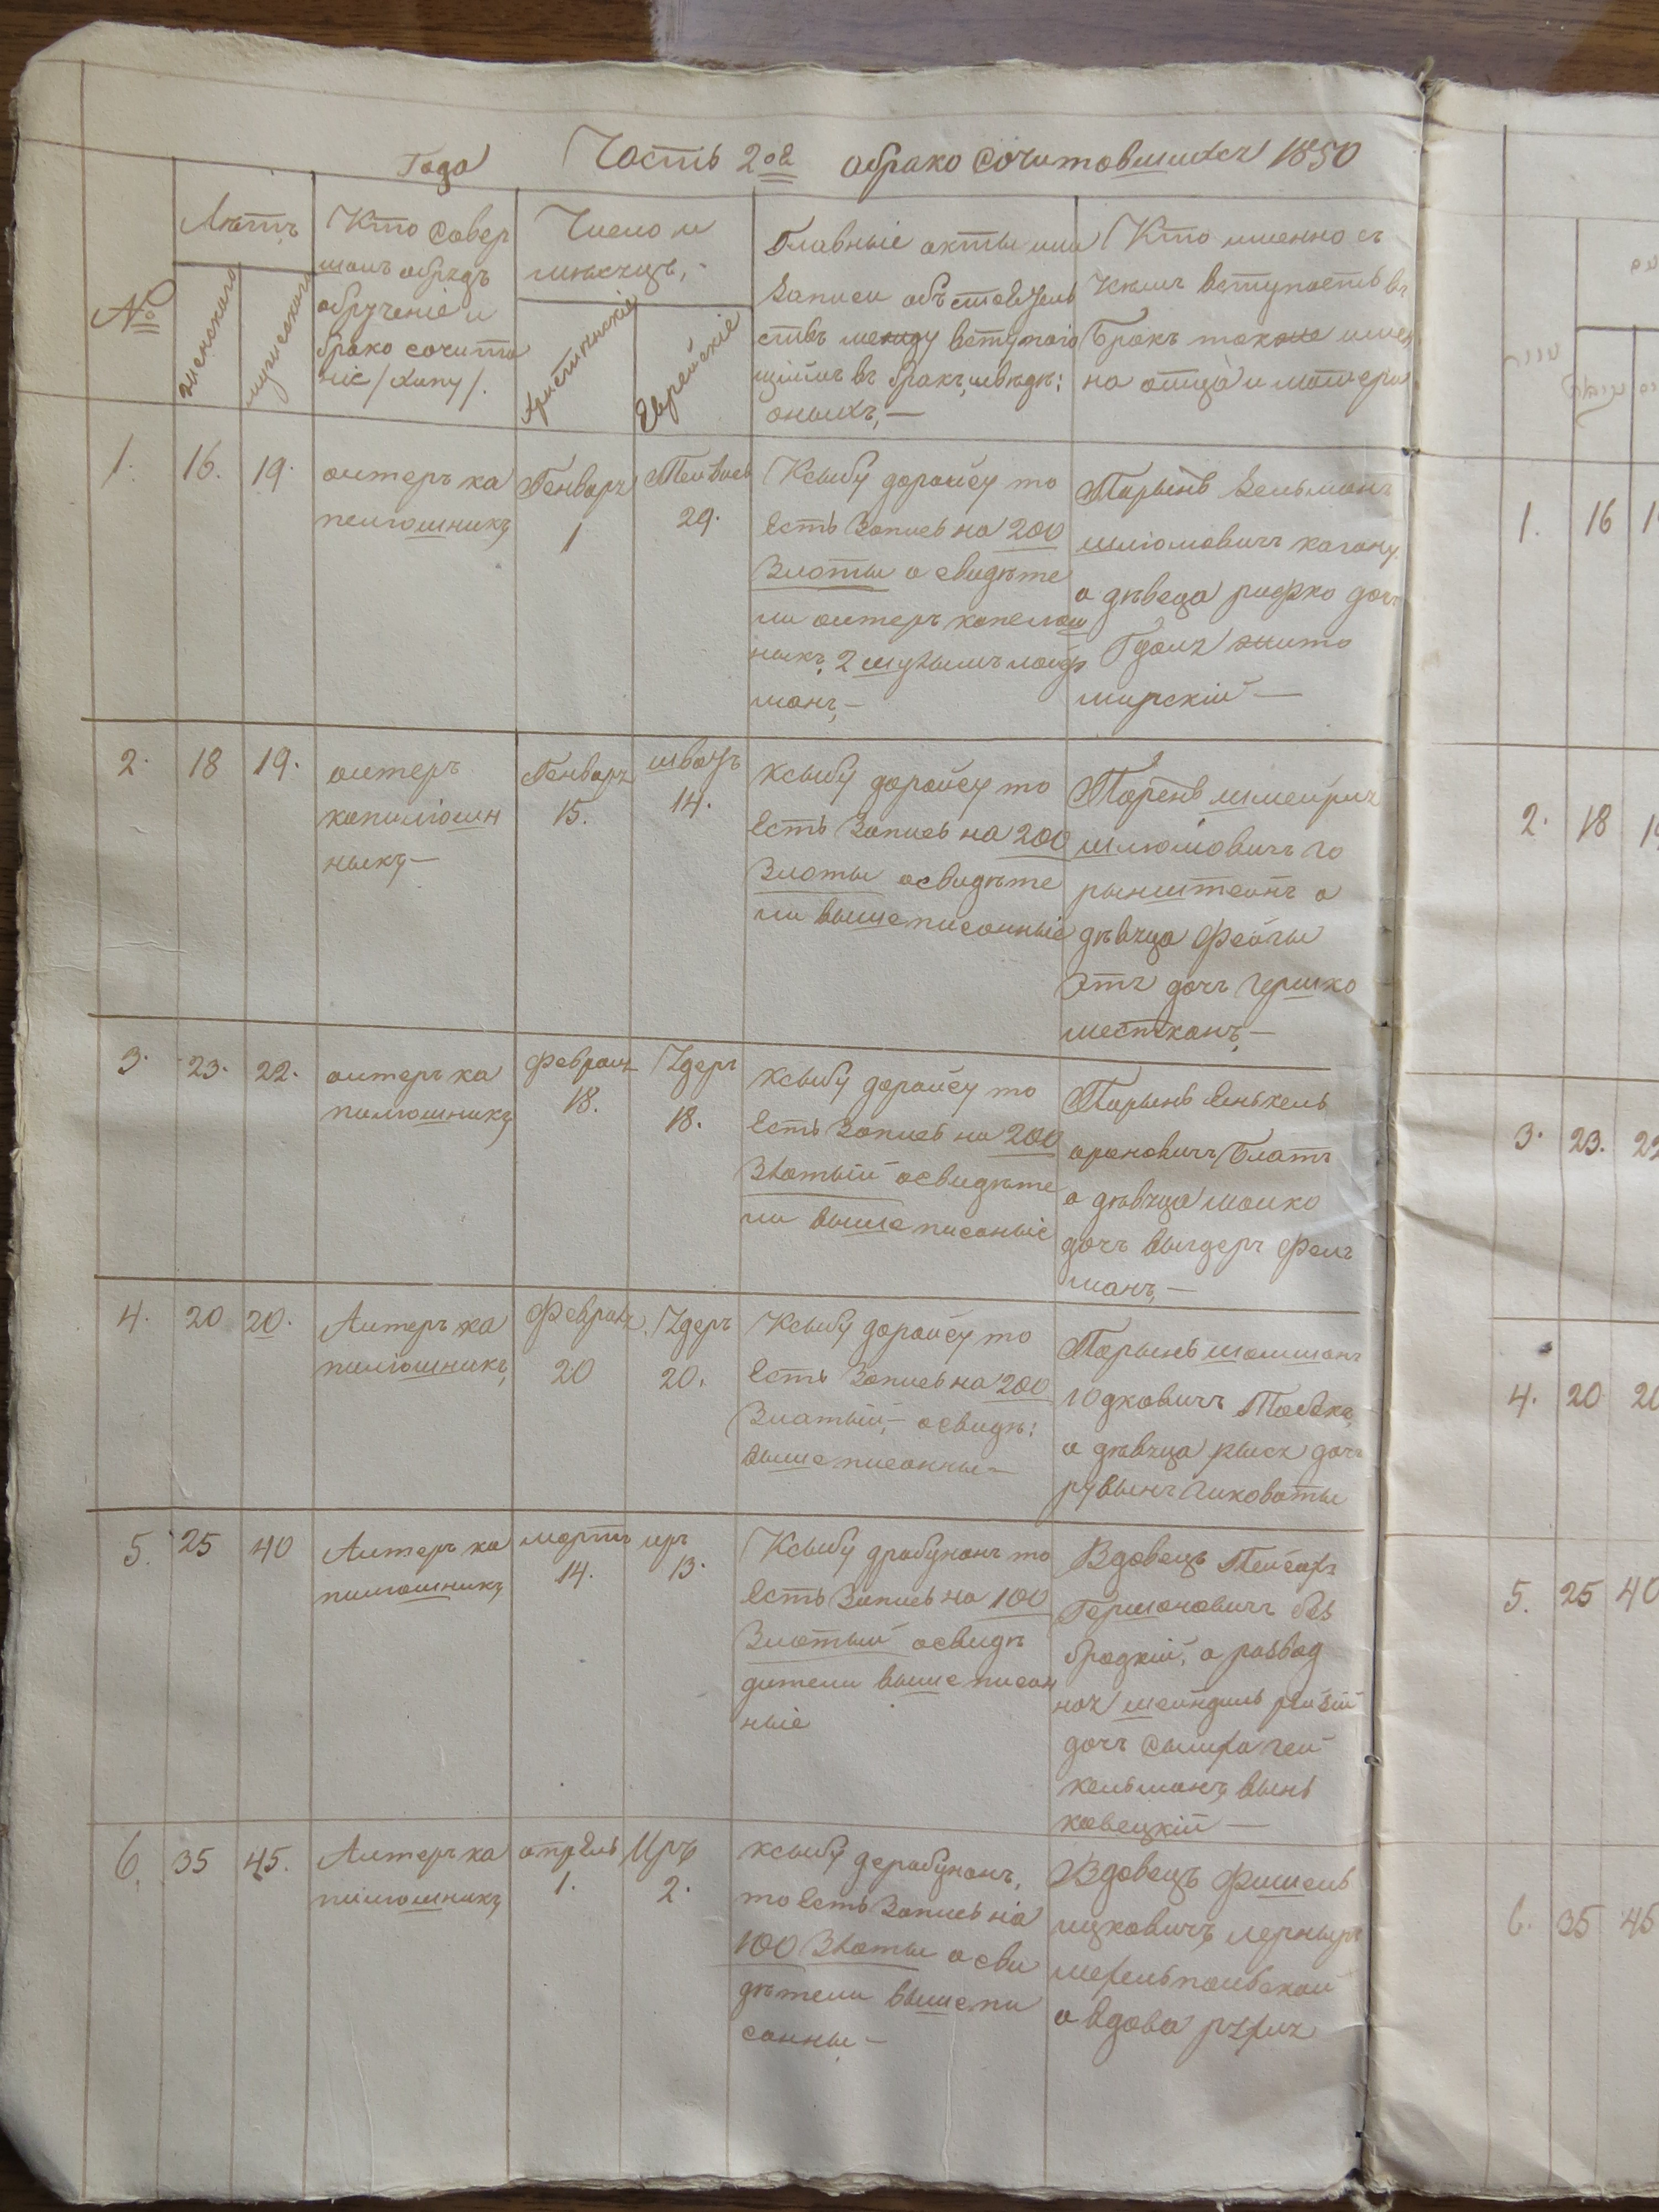 Года Часть 2оя обрако Сочитовшихся 1850
№
Лѣтъ
женского
мужеского
Кто Совер
шалъ обрядъ
обрученіе и
брако сочита
ніе /хупу/.
Число и
мѣсяцъ,-
Христіянскіе
Еврейскіе
Главные акты или
Записи обѣстоятель
ствъ между вступаю
щіимъ въ бракъ, свѣдѣ:
оныхъ,—
Кто именно съ
кимъ вступаетъ въ
Бракъ також имен
на отца и матери
1. 16. 19.
алтеръ ка
пелюшникъ
Генварь
1
Тейвись
29.
Ксыбу дорайсу то
Есть Запись на 200
Злоты а свидѣте
ли алтеръ капелюш
ныкъ, 2 шухымъ лайф
манъ,—
Парынь Зельманъ
шлюмовичъ каганъ
а дѣвеца рифка дочь
Гдаля жито
мирскій—
2. 18 19.
алтеръ
капилюшн
ныкъ—
Генварь
15.
швотъ
14.
Ксыбу дорайсу то
Есть Запись на 200
Злоты асвидѣте
ли вышеписанные
Парень
шлюмовичъ го
рынштеинъ а
дѣвица Фейгы
Этя дочь гершко
3. 23. 22.
алтеръ ка
пилюшникъ
Февраль
18.
Удеръ
18.
Ксыбу дорайсу то
Есть Запись на 200
Злотый асвидѣте
ли выше писаные
Парынь Енькель
ароновичъ Блатъ
а дѣвица малка
дочь выгдеръ Фелг
манъ,—
4. 20 20.
Алтеръ ка
пилюшникъ,
Февраль
20
Удеръ
20.
Ксыбу дорайсу то
Есть Запись на 200
Златый,- асвидѣ:
вышеписанны—
Парынь
юдковичъ
а дѣвица рыся дочь
рувынъ
5. 25 40
Алтеръ ка
пилюшникъ
мартъ
14.
иръ
13.
Ксыбу драбунанъ то
Есть Запись на 100
Злотый асвидѣ
дители выше писан
ные
Вдовецъ Пейсахъ
Гершоновичъ без
бродкій, а развод
ная шейндиль рейзи
дочь
кельманъ, вынь
ковецкій—
6. 35 45.
Алтеръ ка
пилюшникъ
апрѣль
1.
Иръ
2.
Ксыбу дерабунанъ,
то Есть Запись на
100 Злоты а сви
дѣтели вышепи
санны—
Вдовецъ Фишель
ицковичъ
а вдова
1. 16
2. 18
3. 23. 22
4. 20 20
5. 25 40
6. 35 45